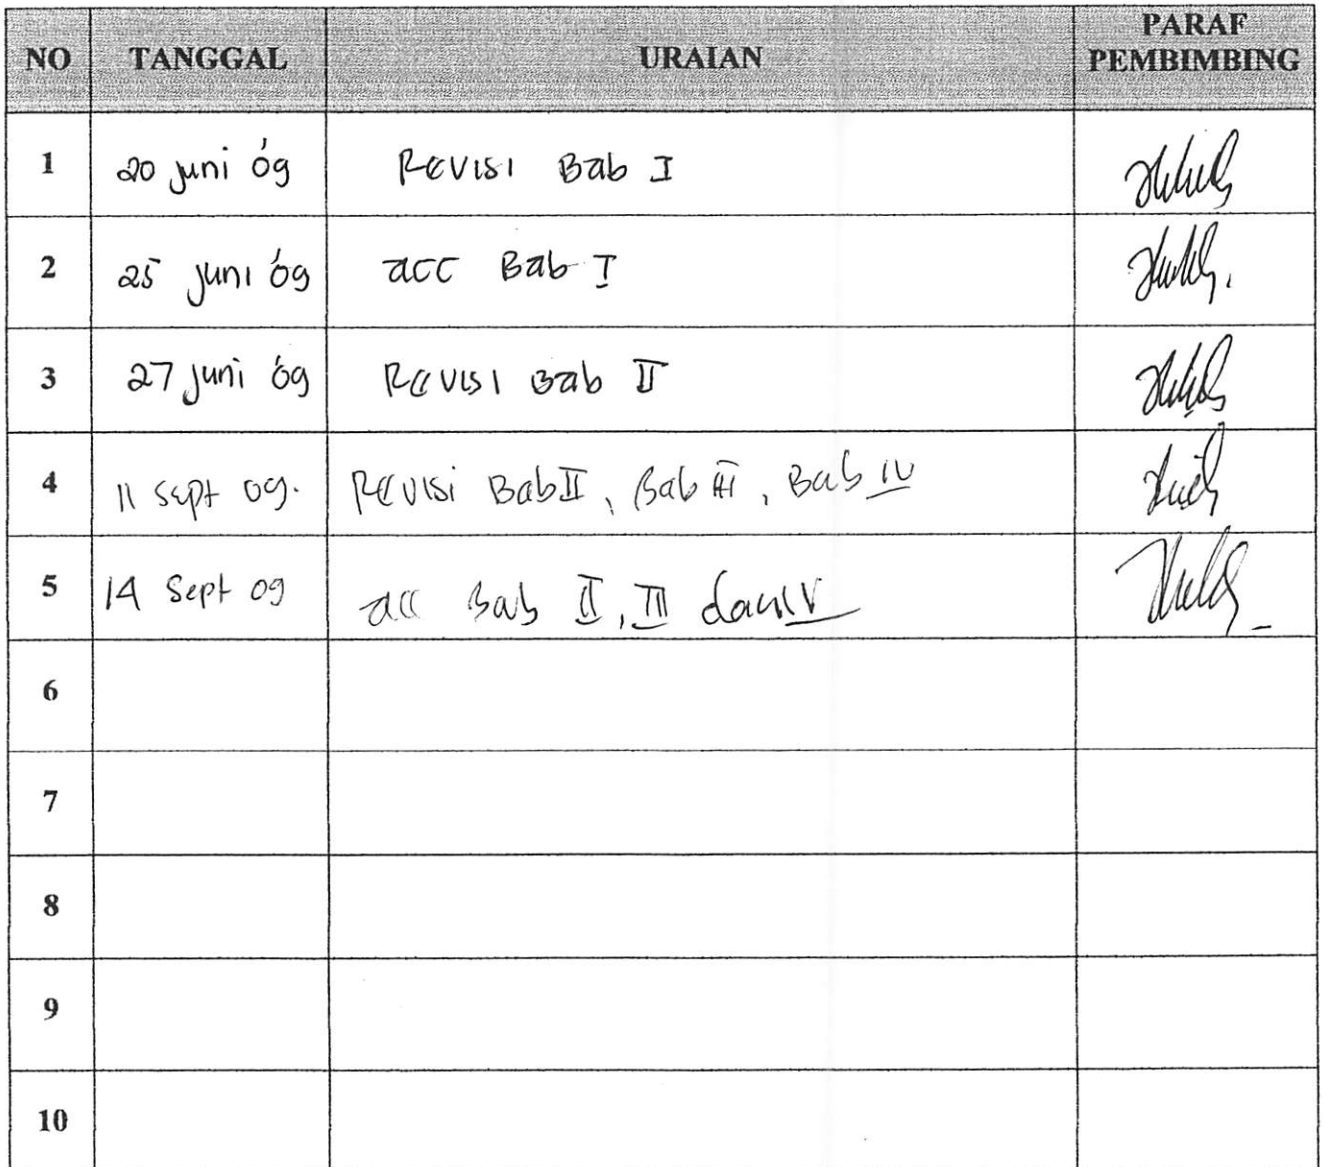 NO TANGGAL URAIAN PARAF PEMBIMBING
1 20 Juni '09 Revisi Bab I
2 25 Juni '09 acc Bab I
3 27 Juni '09 Revisi Bab II
4 11 Sept 09. Revisi Bab II, Bab III, Bab IV
5 14 Sept 09 acc Bab II, III dan IV
6
7
8
9
10